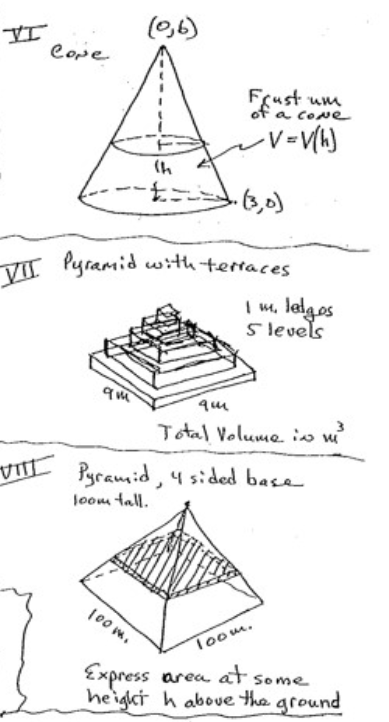 VI
(0,6)
Cone
Frustum
of a cone
V = V(h)
h
(3,0)
VII Pyramid with terraces
1 m. ledges
5 levels
9m
9m
Total Volume in m³
VIII Pyramid, 4 sided base
100m tall.
100m.
100m.
Express area at some
height h above the ground